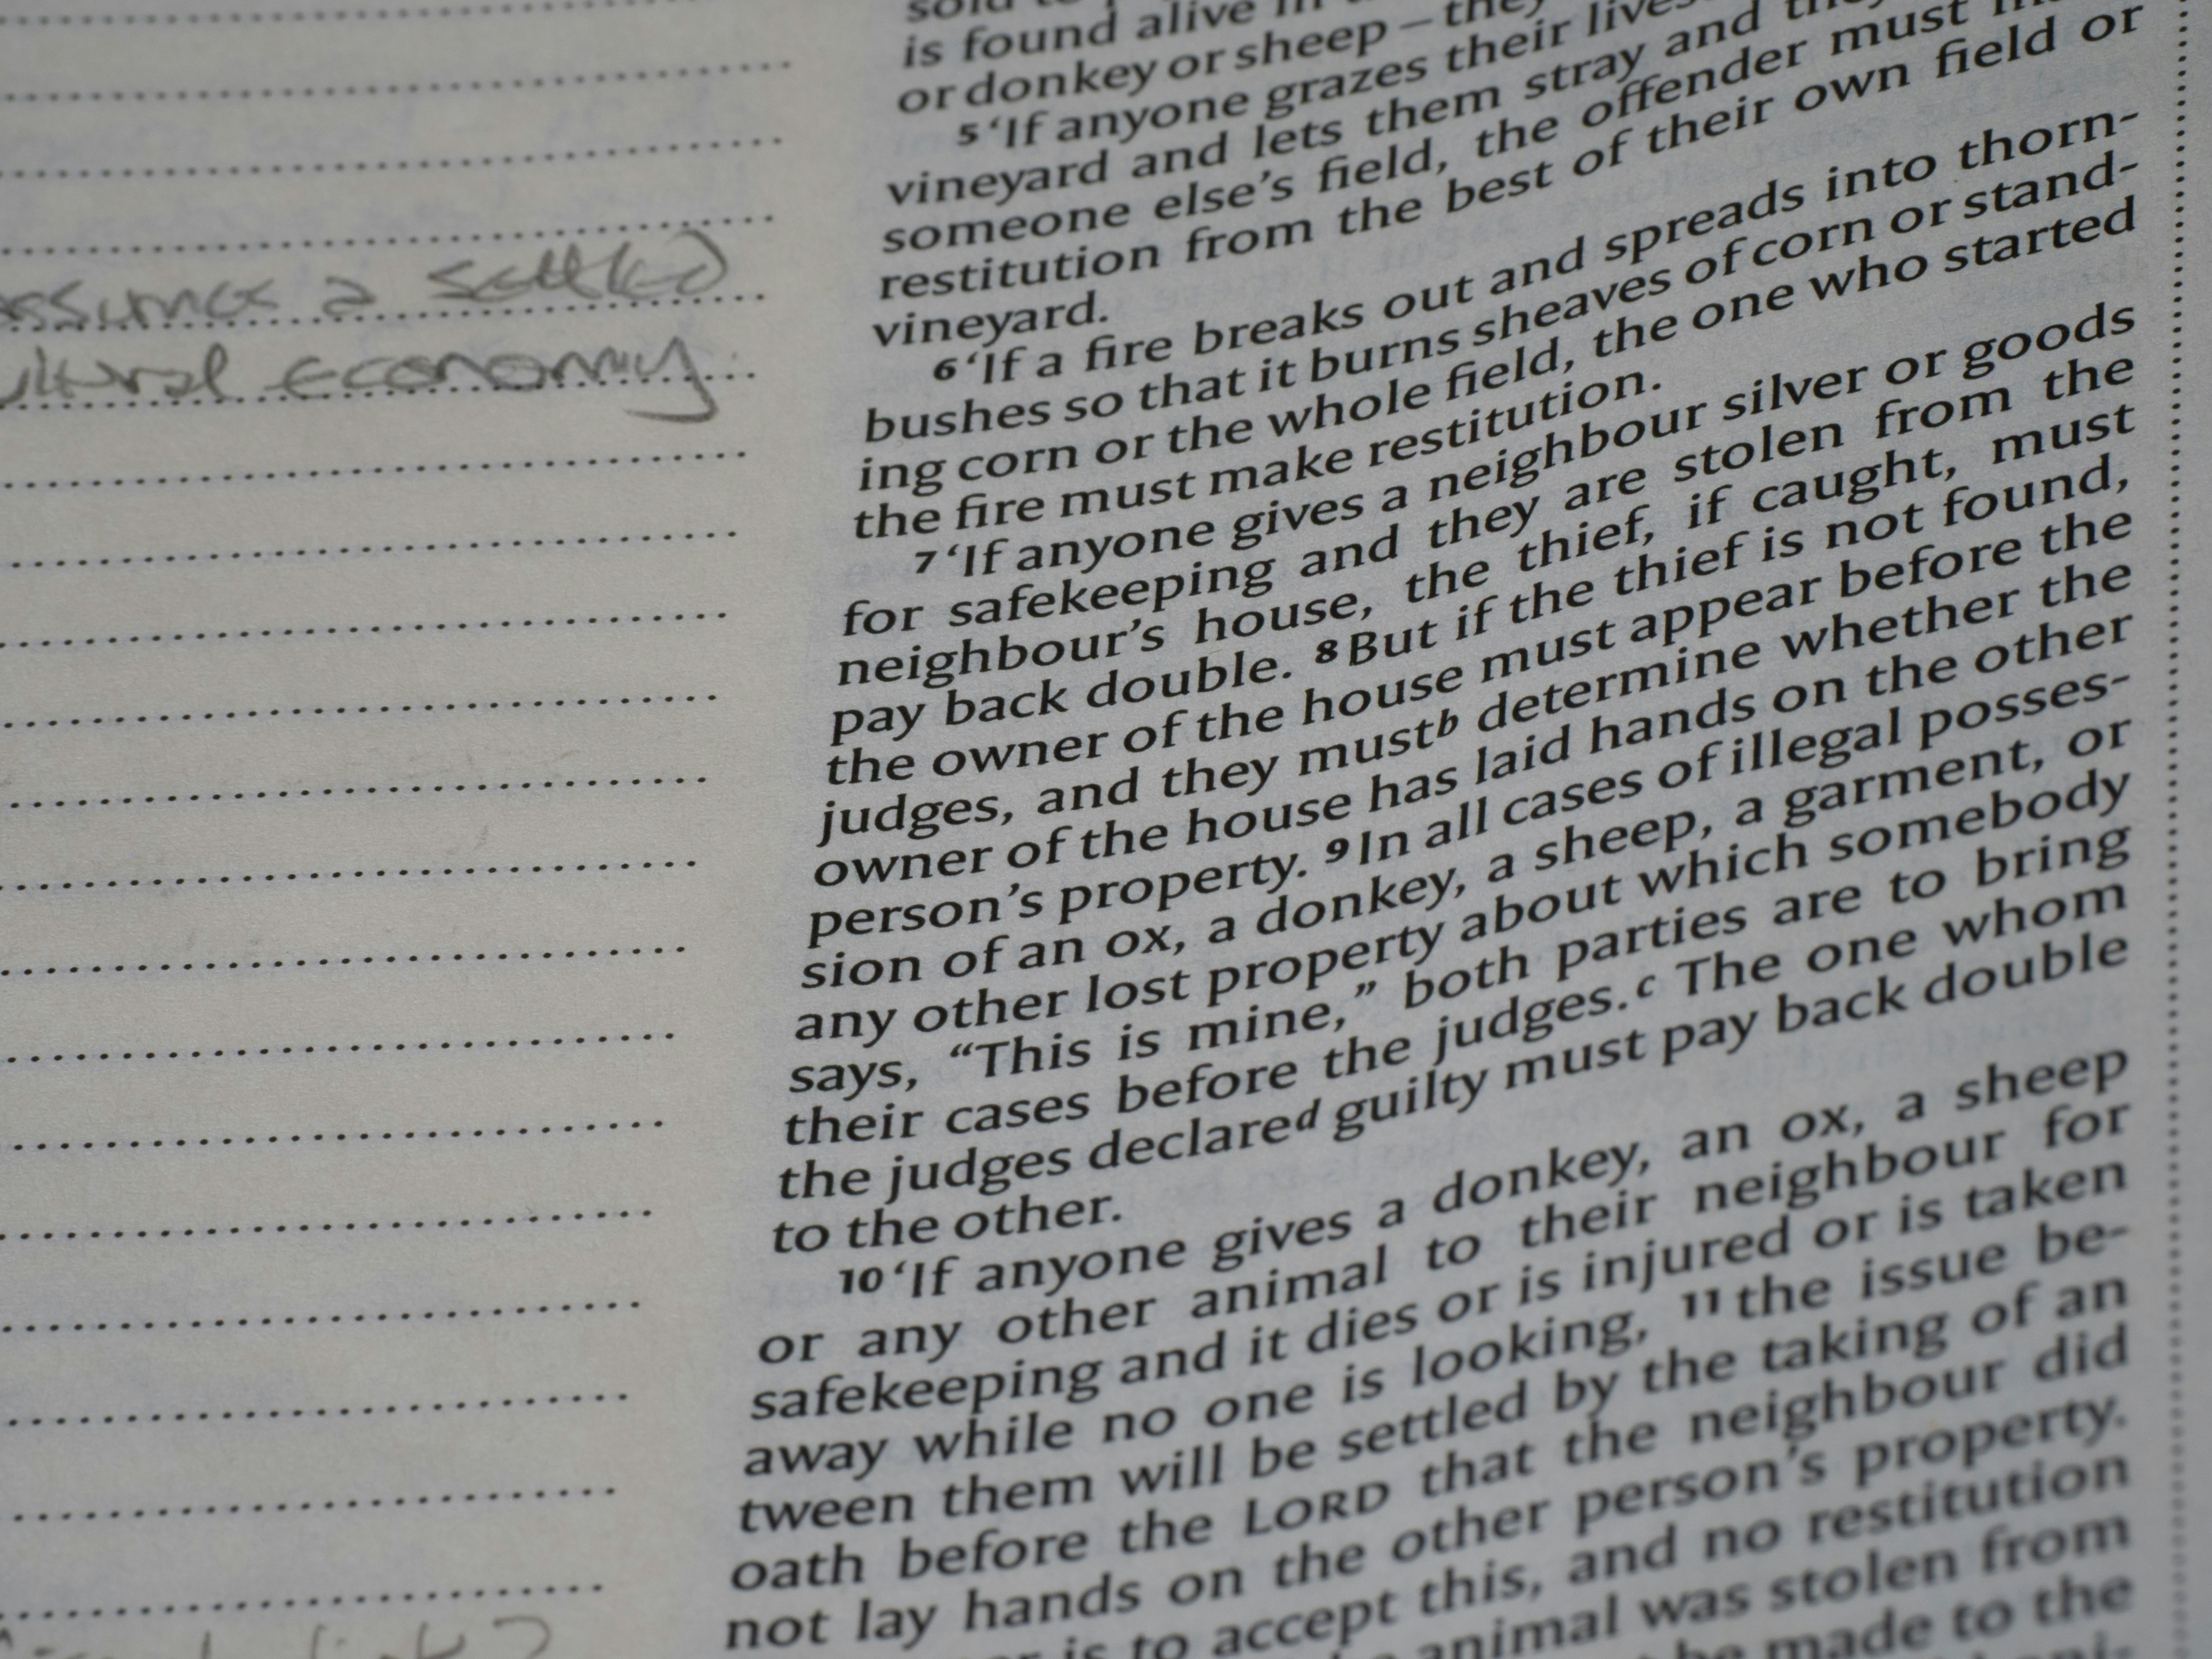 assumes a settled
ultural economy
sold to
is found alive in
or donkey or sheep – they
5 ‘If anyone grazes their lives
vineyard and lets them stray and they
someone else’s field, the offender must
restitution from the best of their own field or
vineyard.
6 ‘If a fire breaks out and spreads into thorn-
bushes so that it burns sheaves of corn or stand-
ing corn or the whole field, the one who started
the fire must make restitution.
7 ‘If anyone gives a neighbour silver or goods
for safekeeping and they are stolen from the
neighbour’s house, the thief, if caught, must
pay back double. 8 But if the thief is not found,
the owner of the house must appear before the
judges, and they must b determine whether the
owner of the house has laid hands on the other
person’s property. 9 In all cases of illegal posses-
sion of an ox, a donkey, a sheep, a garment, or
any other lost property about which somebody
says, “This is mine,” both parties are to bring
their cases before the judges. c The one whom
the judges declare d guilty must pay back double
to the other.
10 ‘If anyone gives a donkey, an ox, a sheep
or any other animal to their neighbour for
safekeeping and it dies or is injured or is taken
away while no one is looking, 11 the issue be-
tween them will be settled by the taking of an
oath before the LORD that the neighbour did
not lay hands on the other person’s property.
is to accept this, and no restitution
animal was stolen from
be made to the